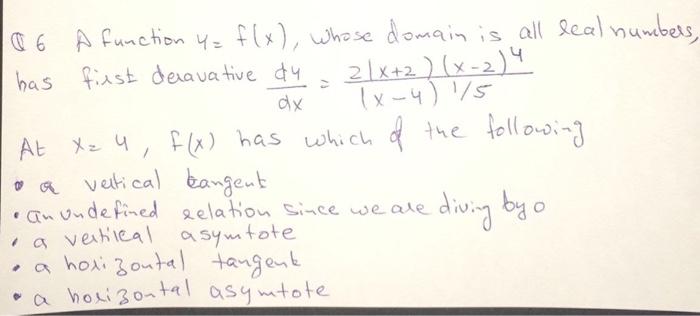 Q 6 A function y = f(x), whose domain is all real numbers,
has first deravative dy/dx = 2(x+2)(x-2)^4 / (x-4)^1/5
At x = 4, f(x) has which of the following
• a vertical tangent
• an undefined relation since we are diving by 0
• a vertical asymtote
• a horizontal tangent
• a horizontal asymtote